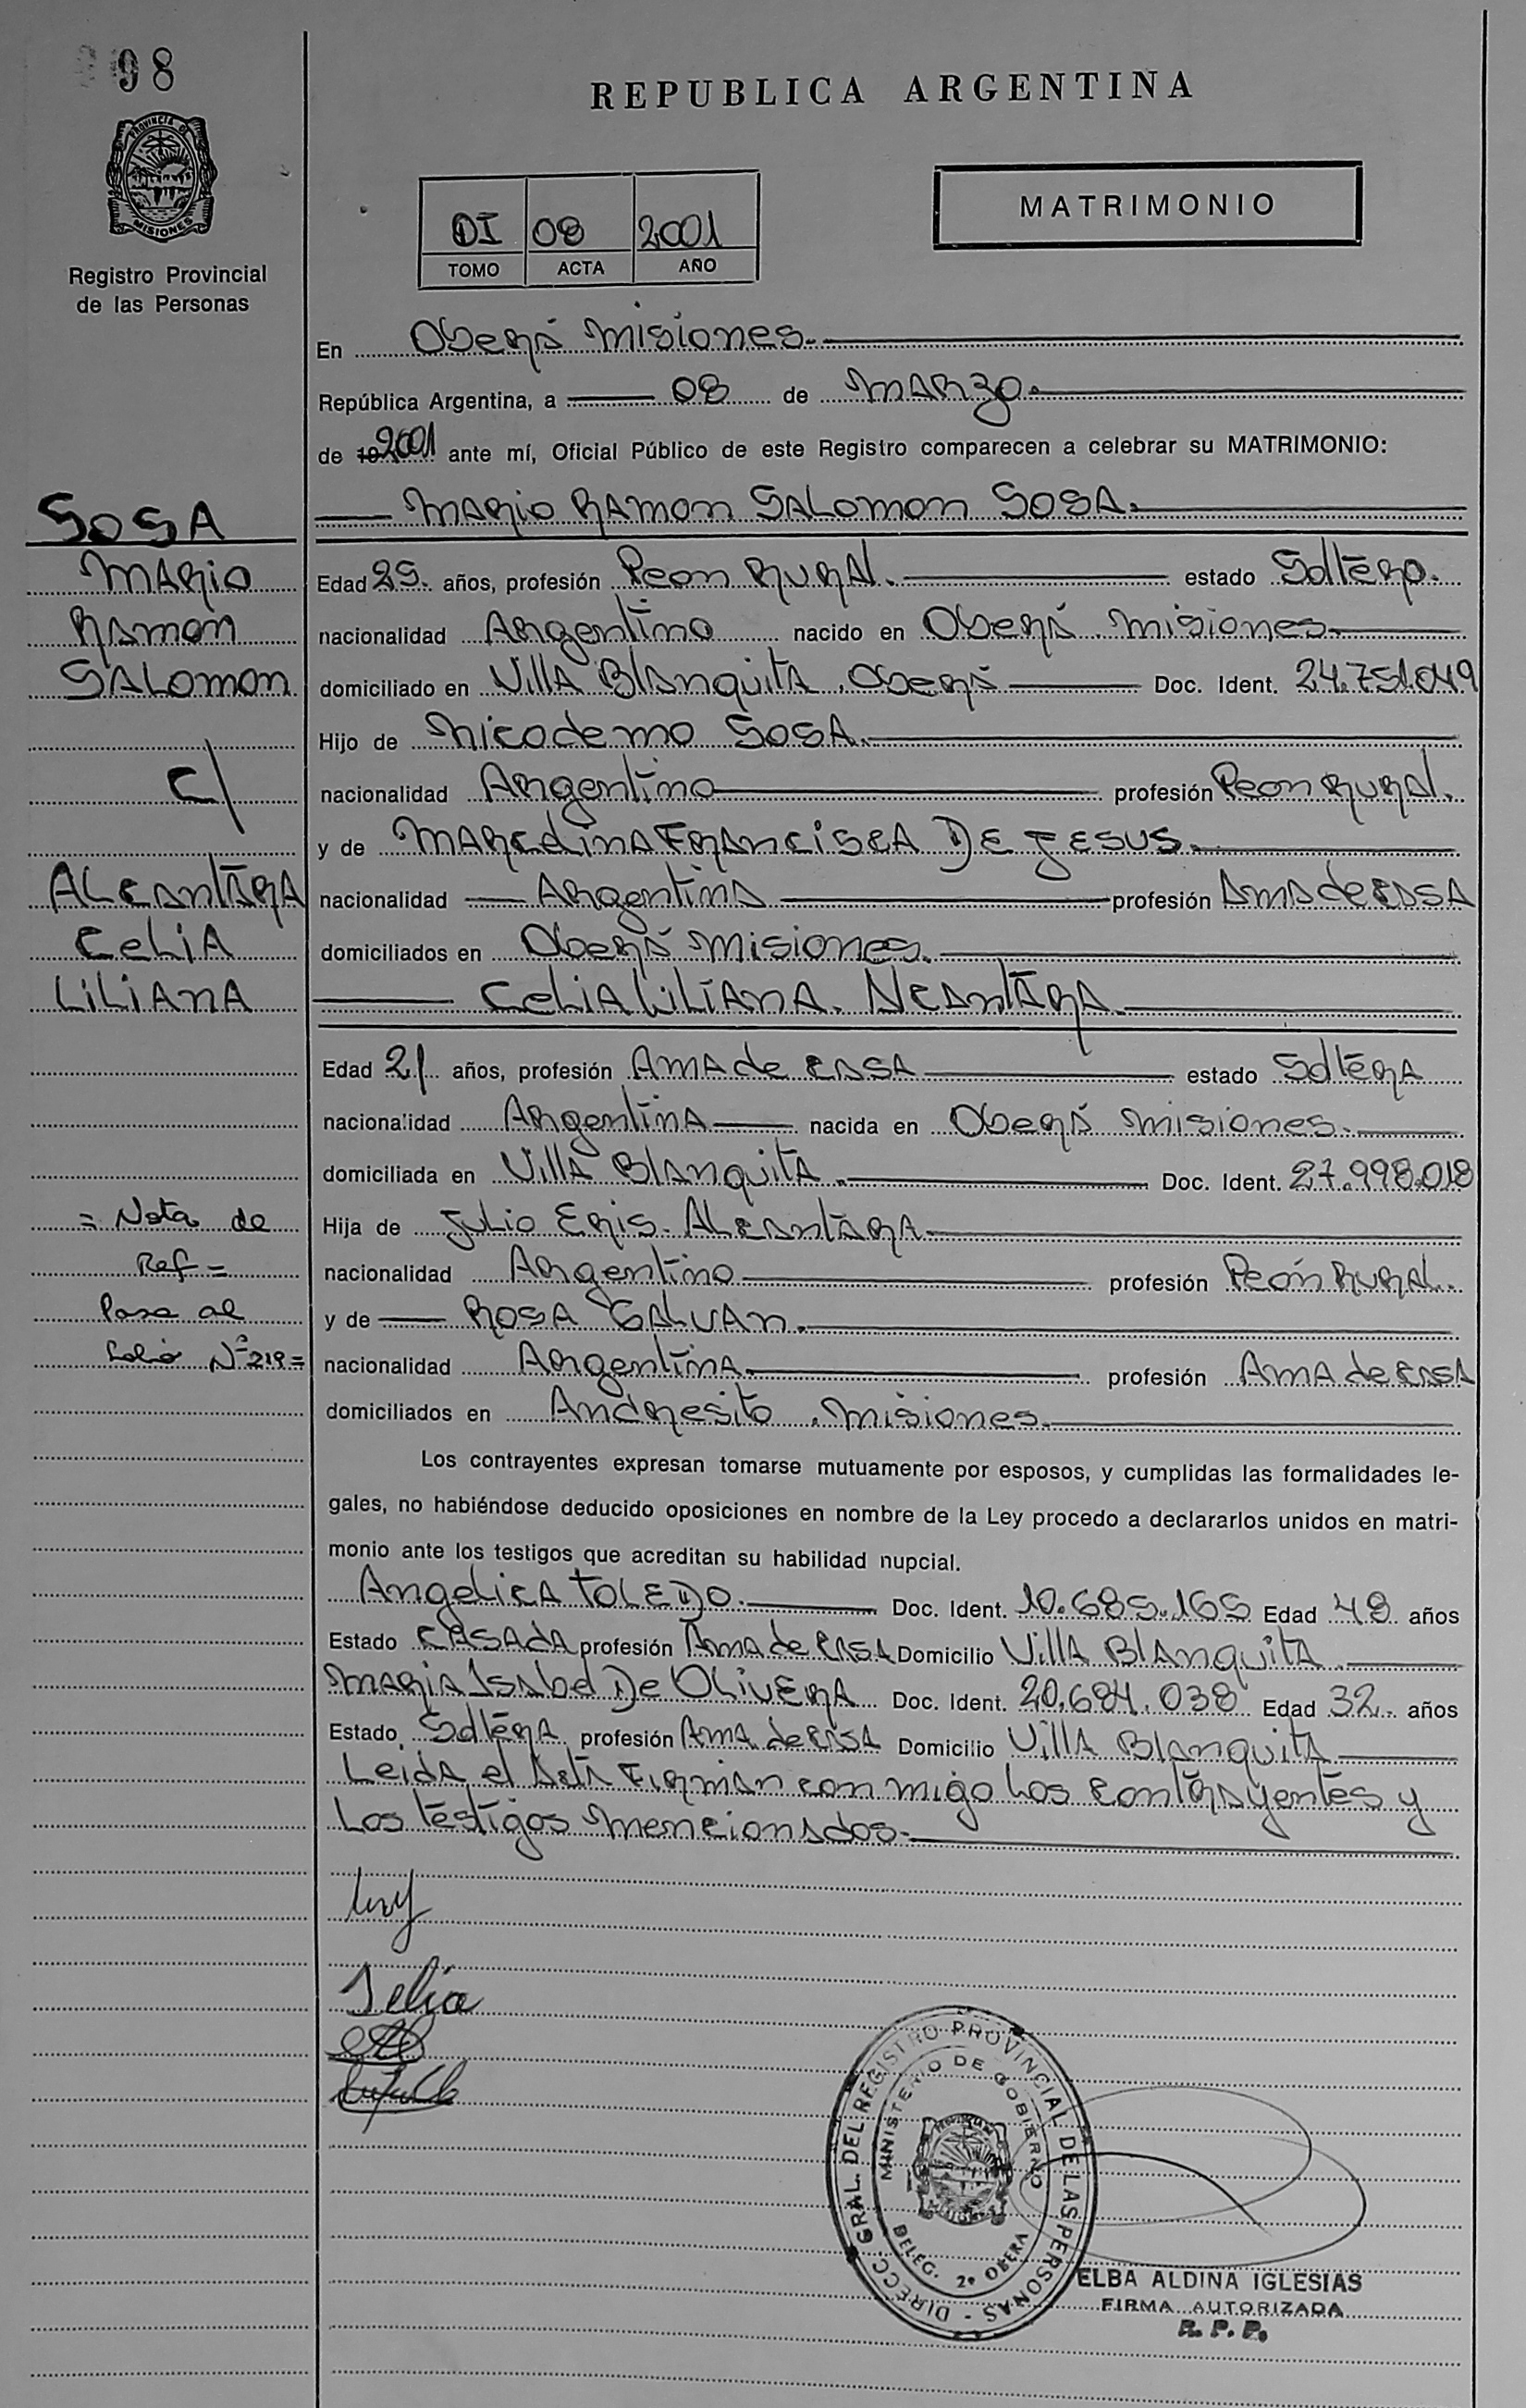 98
REPUBLICA ARGENTINA
PROVINCIA DE
MISIONES
Registro Provincial
de las Personas
DI 08 2001
TOMO ACTA AÑO
MATRIMONIO
En Oberá Misiones.
República Argentina, a 08 de Marzo.
de 19 2001 ante mí, Oficial Público de este Registro comparecen a celebrar su MATRIMONIO:
SOSA
Mario Ramon Salomon Sosa.
Mario
Edad 29. años, profesión Peon Rural. estado Soltero.
Ramon
nacionalidad Argentino nacido en Oberá. Misiones
Salomon
domiciliado en Villa Blanquita. Oberá Doc. Ident. 24.751.049
Hijo de Nicodemo Sosa.
C/
nacionalidad Argentino profesión Peon Rural.
y de Marcelina Francisca De Jesus.
Alcantara
nacionalidad Argentina profesión Ama de casa
Celia
domiciliados en Oberá Misiones.
Liliana
Celia Liliana. Alcantara.
Edad 21 años, profesión Ama de casa estado Soltera
nacionalidad Argentina nacida en Oberá Misiones.
domiciliada en Villa Blanquita. Doc. Ident. 27.998.018
= Nota de
Hija de Julio Eris. Alcantara.
Ref =
nacionalidad Argentino profesión Peon Rural.
Pasa al
y de Rosa Galvan.
Folio Nº 219 =
nacionalidad Argentina. profesión Ama de casa
domiciliados en Andresito. Misiones.
Los contrayentes expresan tomarse mutuamente por esposos, y cumplidas las formalidades le-
gales, no habiéndose deducido oposiciones en nombre de la Ley procedo a declararlos unidos en matri-
monio ante los testigos que acreditan su habilidad nupcial.
Angelica Toledo. Doc. Ident. 10.685.165 Edad 48 años
Estado Casada profesión Ama de casa Domicilio Villa Blanquita.
Maria Isabel De Olivera Doc. Ident. 20.684.038 Edad 32. años
Estado Soltera profesión Ama de casa Domicilio Villa Blanquita
Leida el Acta Firman con migo los contrayentes y
los testigos mencionados.
Celia
DIRECC. GRAL. DEL REGISTRO PROVINCIAL DE LAS PERSONAS -
MINISTERIO DE GOBIERNO
DELEG. 2ª OBERA
ELBA ALDINA IGLESIAS
FIRMA AUTORIZADA
R. P. P.